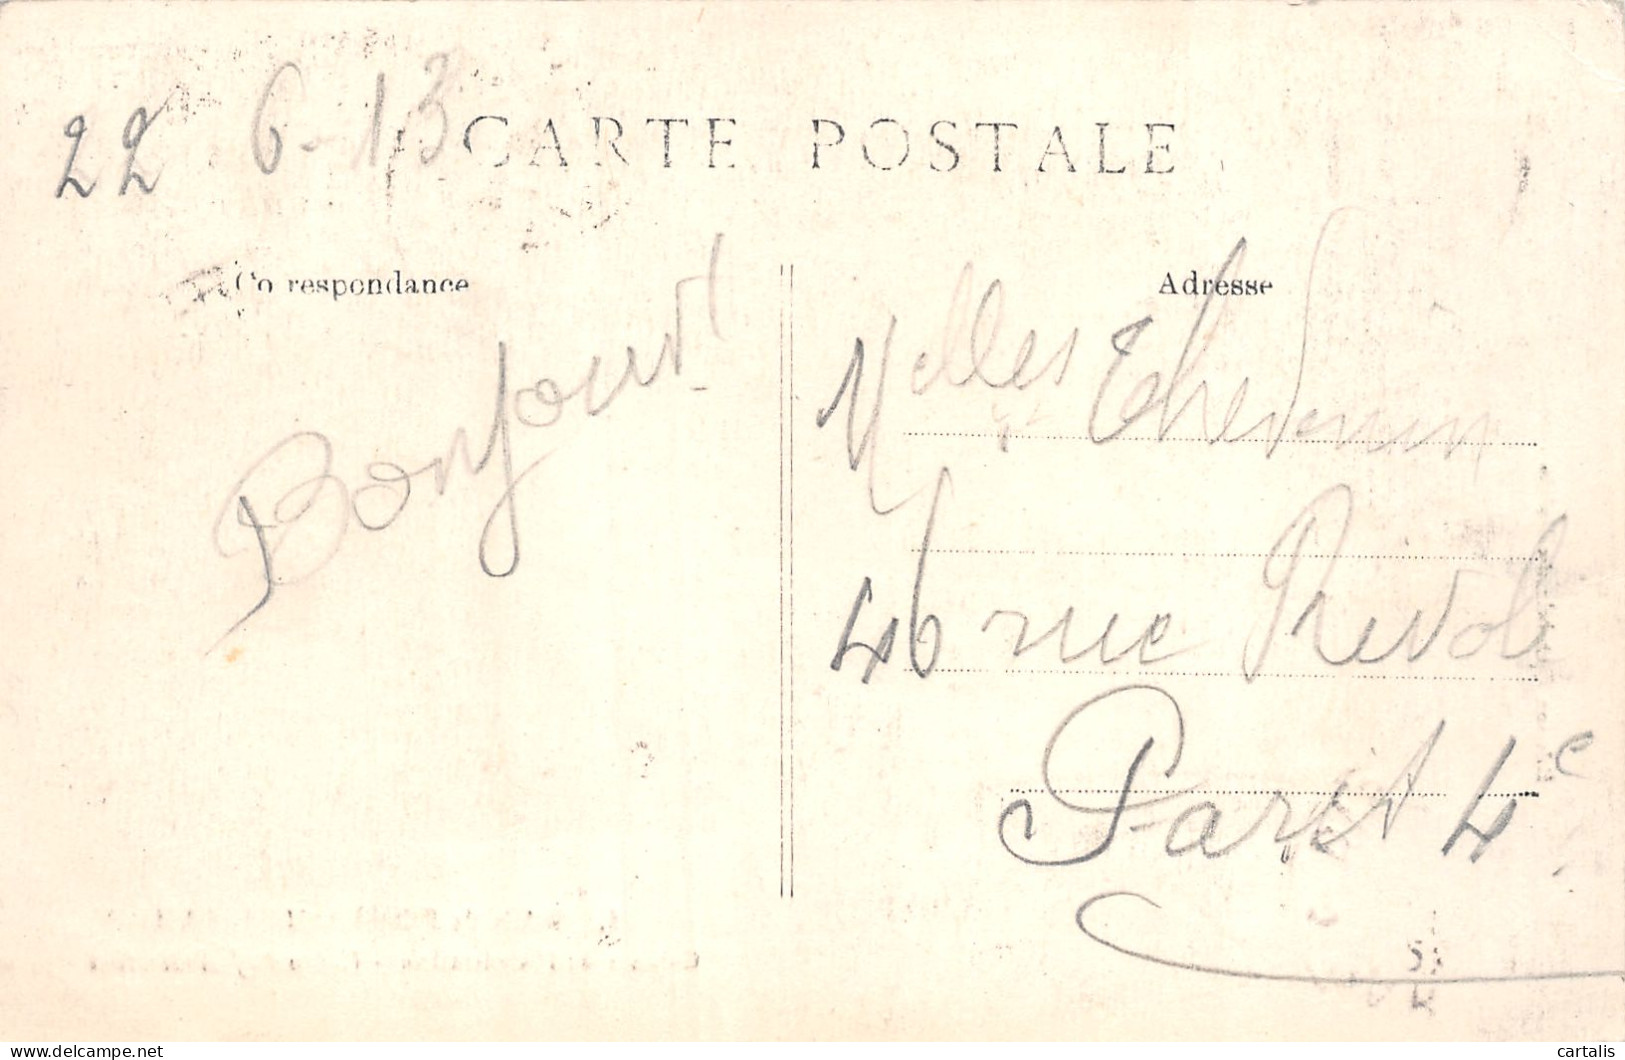 22 6-13
CARTE POSTALE
Correspondance
Adresse
Bonjour !
Melles Thevenin
46 rue Rivoli
Paris 4e
cartalis